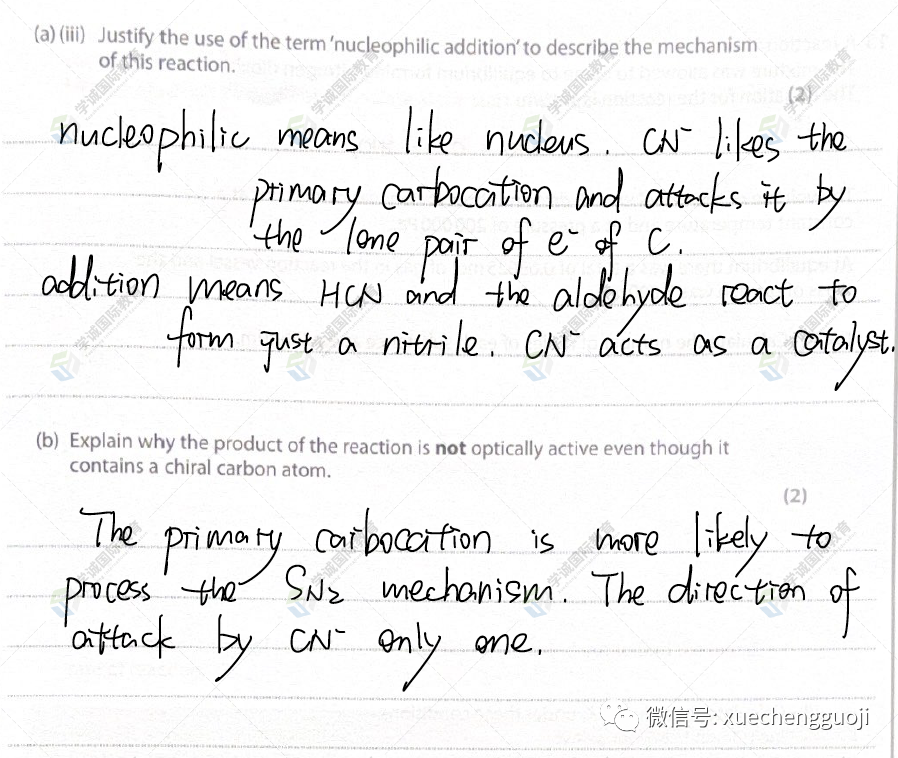 (a) (iii) Justify the use of the term ‘nucleophilic addition’ to describe the mechanism
of this reaction.
(2)
nucleophilic means like nucleus. CN⁻ likes the
primary carbocation and attacks it by
the lone pair of e⁻ of C.
addition means HCN and the aldehyde react to
form just a nitrile. CN⁻ acts as a catalyst.
(b) Explain why the product of the reaction is not optically active even though it
contains a chiral carbon atom.
(2)
The primary carbocation is more likely to
process the SN₂ mechanism. The direction of
attack by CN⁻ only one.
微信号: xuechengguoji
学诚国际教育